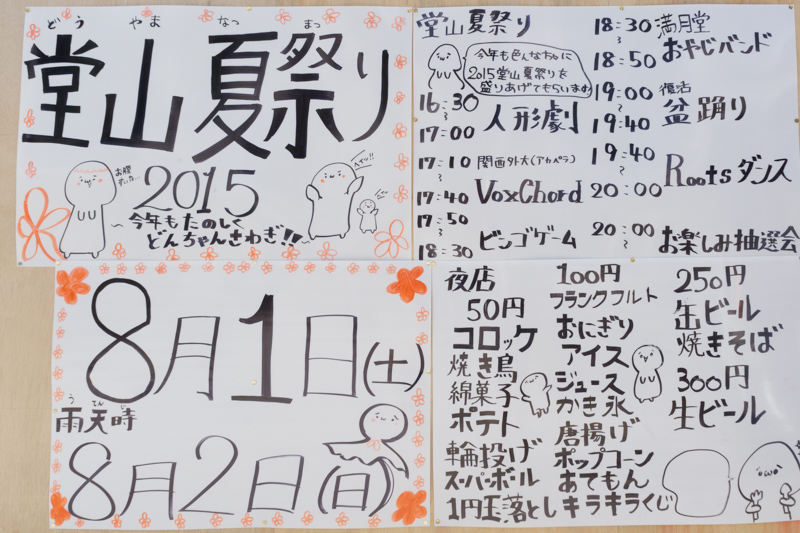 どう やま なつ まつ
堂山夏祭り
2015
お腹すいた…
ヘイッ!!
〜今年もたのしく
どんちゃんさわぎ!!〜
堂山夏祭り
今年も色んな方々に
2015堂山夏祭りを
盛りあげてもらいます
16:30
〜
17:00
人形劇
17:10
〜
17:40
関西外大(アカペラ)
VoxChord
17:50
〜
18:30
ビンゴゲーム
18:30
〜
18:50
満月堂
おやじバンド
19:00
〜
19:40
復活
盆踊り
19:40
〜
20:00
Rootsダンス
20:00
〜
お楽しみ抽選会
8月1日(土)
うてんじ
雨天時
8月2日(日)
夜店
50円
コロッケ
焼き鳥
綿菓子
ポテト
輪投げ
スーパーボール
1円玉落とし
100円
フランクフルト
おにぎり
アイス
ジュース
かき氷
唐揚げ
ポップコーン
あてもん
キラキラくじ
250円
缶ビール
焼きそば
300円
生ビール